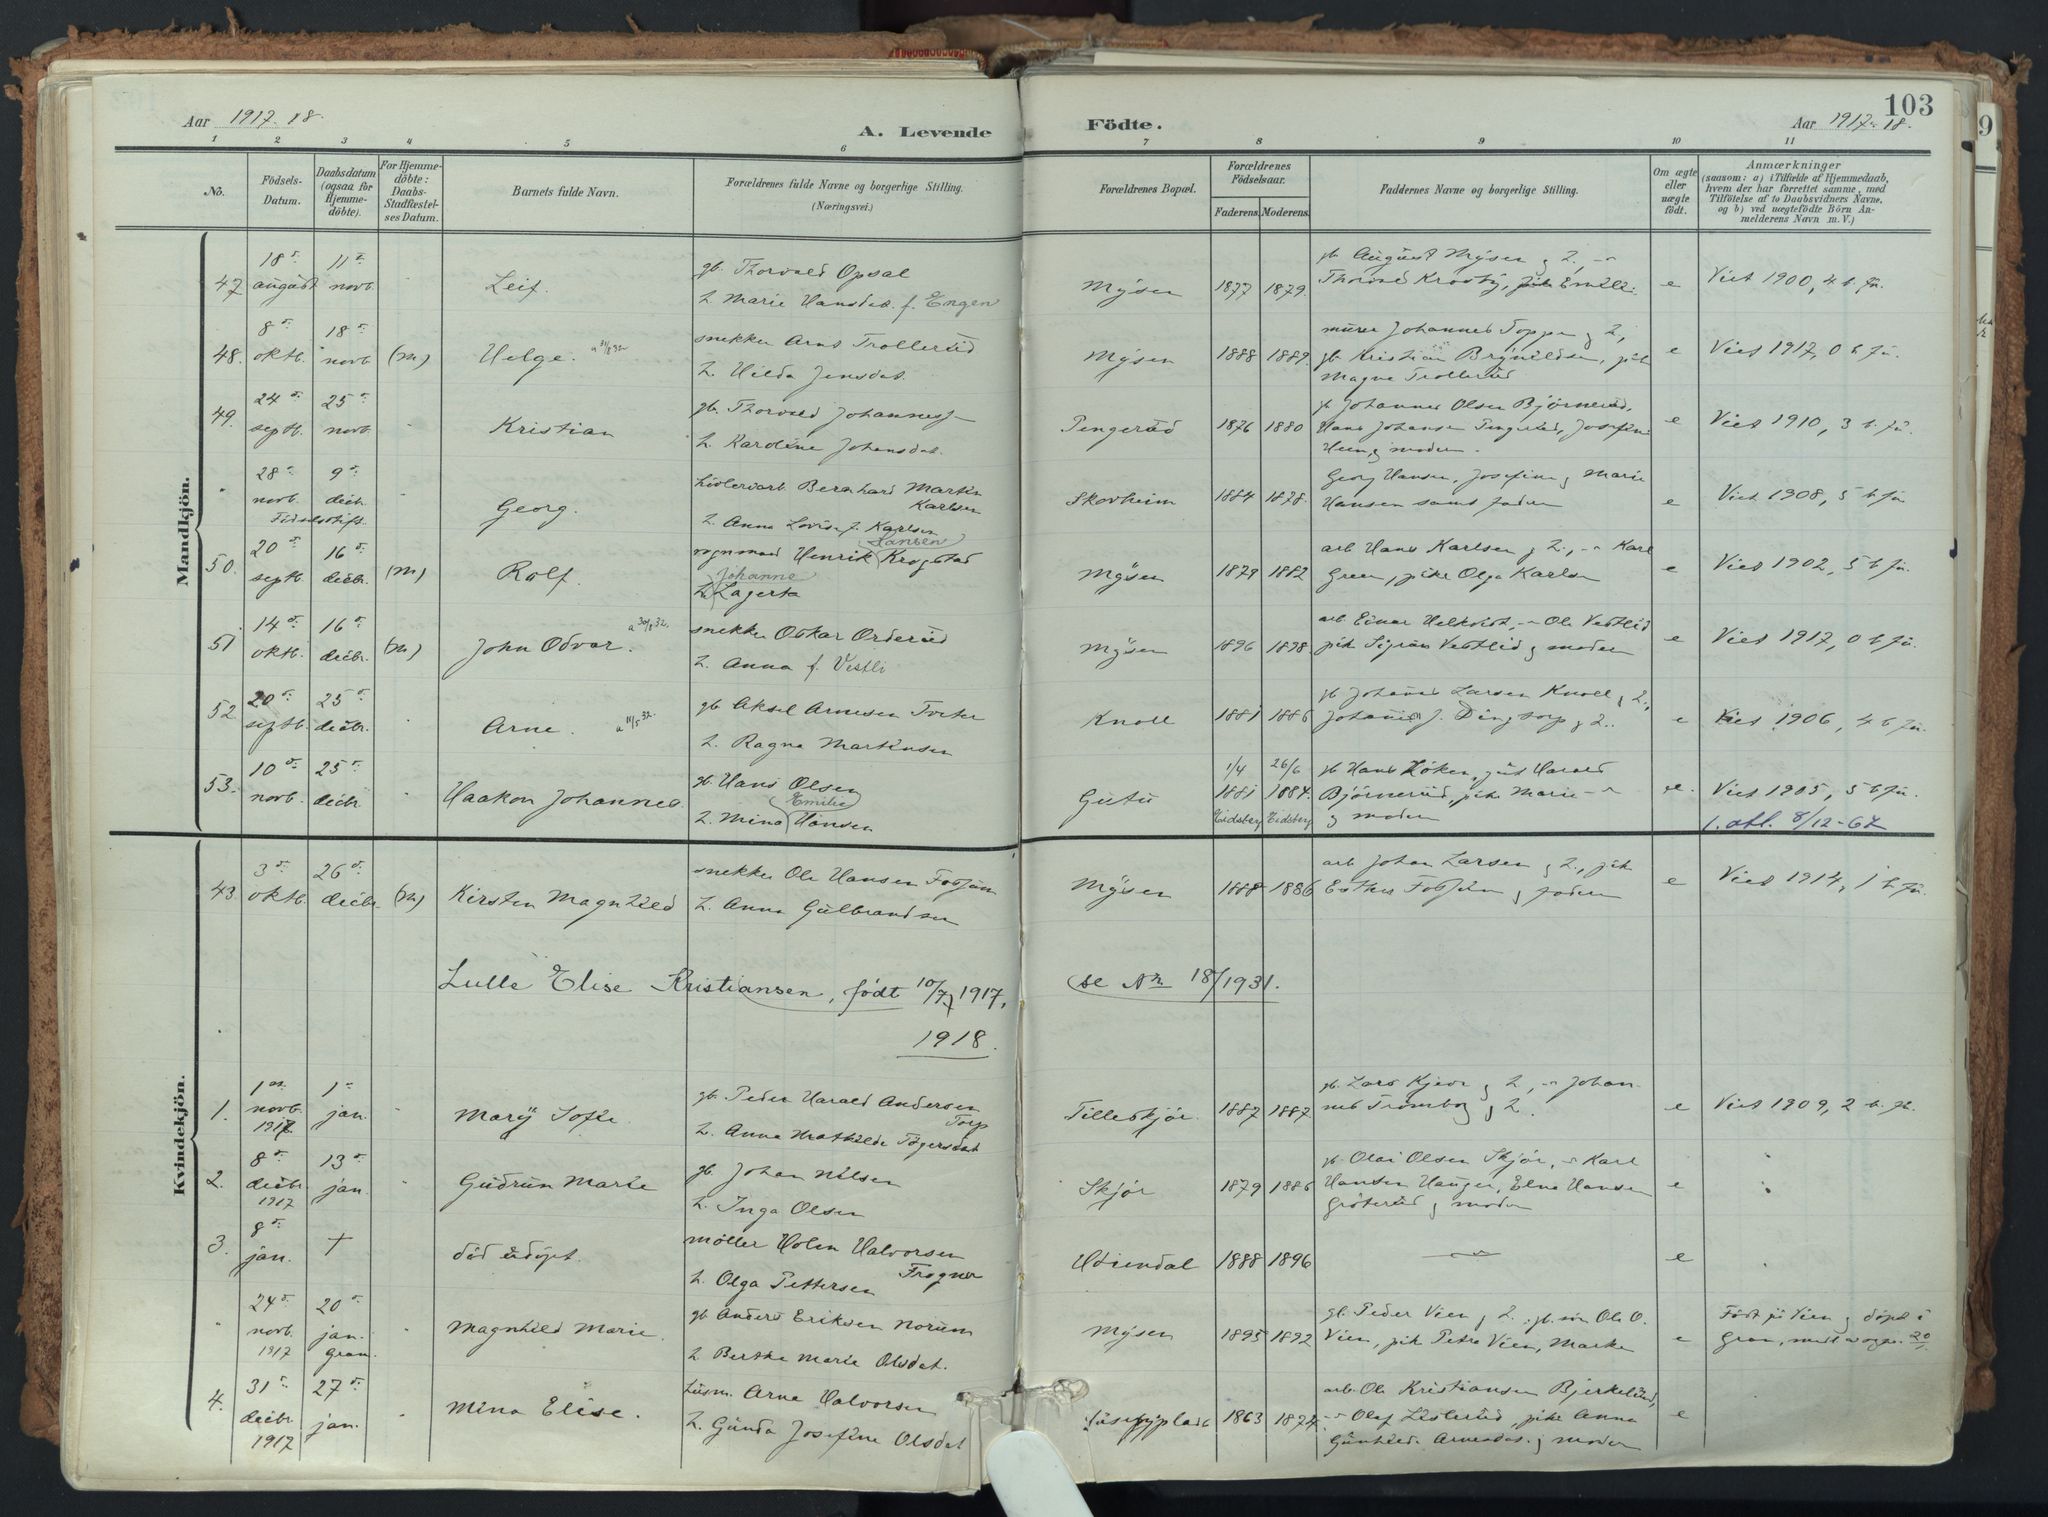 103
Aar 1917-18.
A. Levende
Födte.
Aar 1917-18.
1 2 3 4 5 6 7 8 9 10 11
No.
Födsels-Datum.
Daabsdatum (ogsaa for Hjemmedöbte).
For Hjemmedöbte: Daabs-Stadfæstelses Datum.
Barnets fulde Navn.
Forældrenes fulde Navne og borgerlige Stilling. (Næringsvei.)
Forældrenes Bopæl.
Forældrenes Födselsaar.
Faderens. Moderens.
Faddernes Navne og borgerlige Stilling.
Om ægte eller uægte födt.
Anmærkninger
(saasom: a) i Tilfælde af Hjemmedaab, hvem der har forrettet samme, med Tilföielse af to Daabsvidners Navne, og b) ved uægtefödte Börn Anmelderens Navn m. V.)
Mandkjön.
47 18 august 11 novb. Leif. gb. Thorvald Opsal
h. Marie Hansdat. f. Engen
Mysen 1877 1879 gb. August Mysen e Viet 1900, 4 b. fü.
48. 8 oktb. 18 novb (m) Helge. a 31/8 32 snekker Arns Trollerüd
h. Hilda Jensdat.
Mysen 1888 1889. murer Johannes Toppe & h.,
gb. Kristian Brynildsen, pik
Magna Trollerüd
e Viet 1917, 0 b fü.
49. 24 septb. 25 novb. Kristian gb. Thorvald Johannes
h. Karoline Johansdat.
Pengerüd 1876 1880 gb. Johannes Olsen Björnerüd,
Hans Johansen Pengerüd, Josefine
Heen, & moderen.
e Viet 1910, 3 b. fü.
28 novb. 9 decbr. Georg. Bernhard Martin Karlsen
h. Anna Lovise f. Karlsen
Skovheim 1884 1878. Georg Hansen, Josefine & Marie
Hansen samt faderen
e Viet 1908, 5 b fü.
50. 20 septb. 16 decbr. (m) Rolf. vognmand Henrik Hansen Krogstad
h. Johanne Lagerta
Mysen 1879 1882 arb Hans Karlsen & h., Karl
Green, pike Olga Karlsen
e Viet 1902, 5 b fü.
51 14 oktb. 16 decbr. (m) John Odvar. a 30/8 32. snekker Oskar Orderüd
h. Anna f. Vestli
Mysen 1896 1898 arb Einar Helkvist, Ole Vestlid
pik Sigrun Vestlid & moderen
e Viet 1917, 0 b fü.
52 20 septb. 25 decbr. Arne. a 11/5 32. gb Aksel Arnesen
h. Ragna Martinsen
Knoll 1881 1886 gb Johannes Larsen Knoll & h.,
Johannes J. Dingtorp & h.
e Viet 1906, 4 b fü.
53. 10 novb. 25 decbr Haakon Johannes. gb. Hans Olsen
h. Mina Emilie Hansen
Gutu 1/4 1881 Eidsberg 26/6 1884. Eidsberg gb Hans Höken, Harald
Björnerüd, pike Marie
& moderen
e. Viet 1905, 5 b fü.
1. att. 8/12-67
Kvindekjön.
43. 3 oktb. 26 decbr (m) Kirsten Magnhild snekker Ole Hansen
h. Anna Gulbrandsen
Mysen 1888 1886 arb Johan Larsen & h., pik
Esther & faderen
e Viet 1914, 1 b. fü.
Lulle Elise Kristiansen, födt 10/7 1917, se Nr 18/1931.
1918.
1. 1 novb. 1917 1 jan. Mary Sofie. gb. Peder Harald Andersen Torp
h. Anna Mathilde Tögersdat
Tilleskjör. 1887 1887 gb. Lars & h., Johan-
nes Trömborg & h.
e Viet 1909, 2 b. fü.
2. 8 decbr 1917 13 jan. Gudrun Marie gb. Johan Nilsen
h. Inga Olsen
Skjör 1879 1886 gb. Olai Olsen Skjör, Karl
Hansen Hauger, Elna Hansen
Gröterüd & moderen
e
3. 8 jan. † död udöpt. möller Holen Halvorsen Frogner
h. Olga Pettersen
1888 1896 e
24 novb. 1917 20 jan. gran. Magnhild Marie. gb Anders Eriksen Norum
h Berthe Marie Olsdat.
Mysen 1895 1892 gb. Peder Vien & h. gb. sön Ole O.
Vien, pik Petra Vien, Marthe
e Födt på Vien & döpt i
Gran, 20/1
4. 31 decbr 1917 27 jan. Mina Elise. Husm. Arne Halvorsen
h. Gunda Josefine Olsdat
1863 1874. arb. Ole Kristiansen Bjerkelund,
Olaf Listerud, pike Anna
Gunhild Arnesdat. & moderen
e